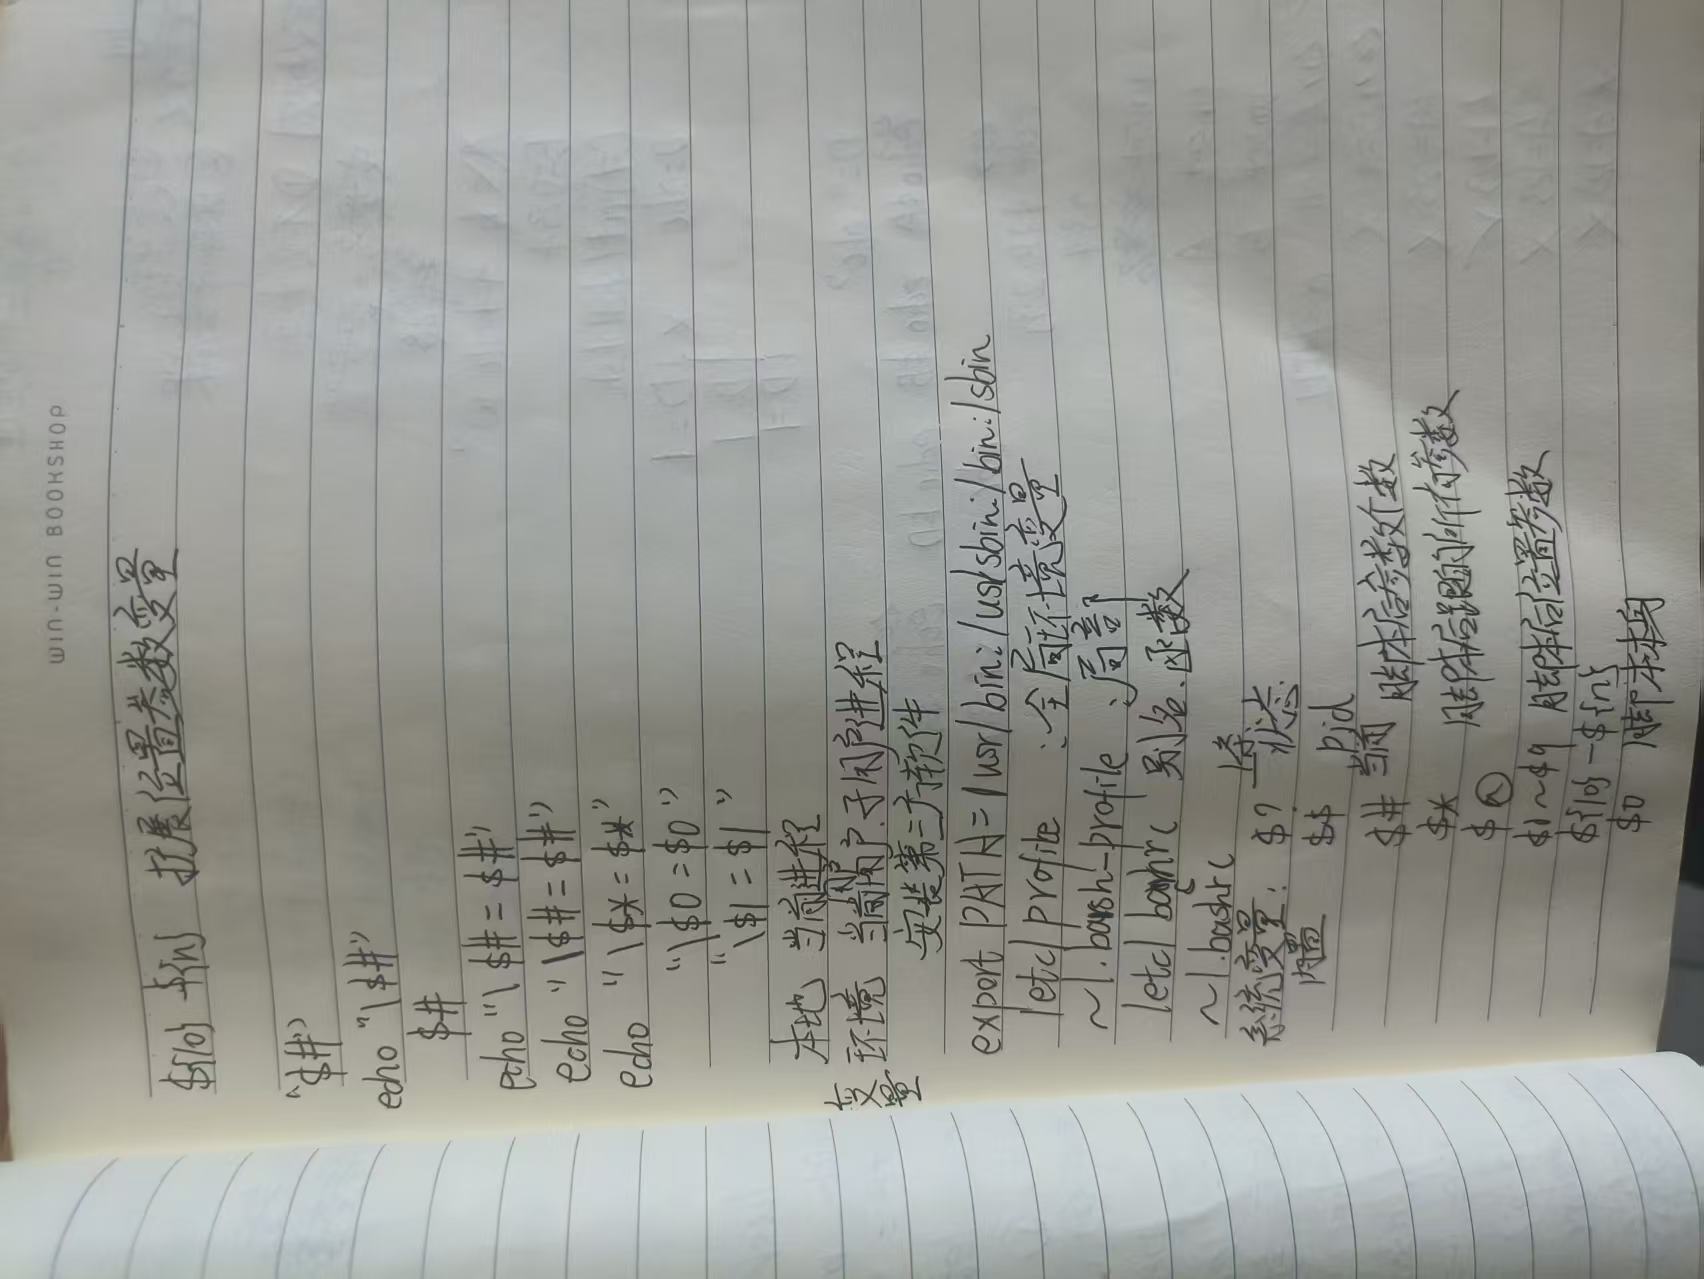 WIN-WIN BOOKSHOP
${10} ${n} 扩展位置类数变量
"$#"
echo "\$#"
$#
echo "\$# = $#"
echo "\$# = $#"
echo "\$* = $*"
"\$0 = $0"
"\$1 = $1"
本地 当前进程
变量 环境 当前用户.子用户进程
安装第三方软件
export PATH=/usr/bin:/usr/sbin:/bin:/sbin
/etc/profile :全局环境变量
~/.bash-profile :局部
/etc/bashrc 别名.函数
~/.bashrc
系统变量: $? 上条 状态
内置 $$ 当前 pid
$# 脚本后参数个数
$* 脚本后跟的所有参数
$@
$1~$9 脚本后位置参数
${10}-${n}
$0 脚本本身